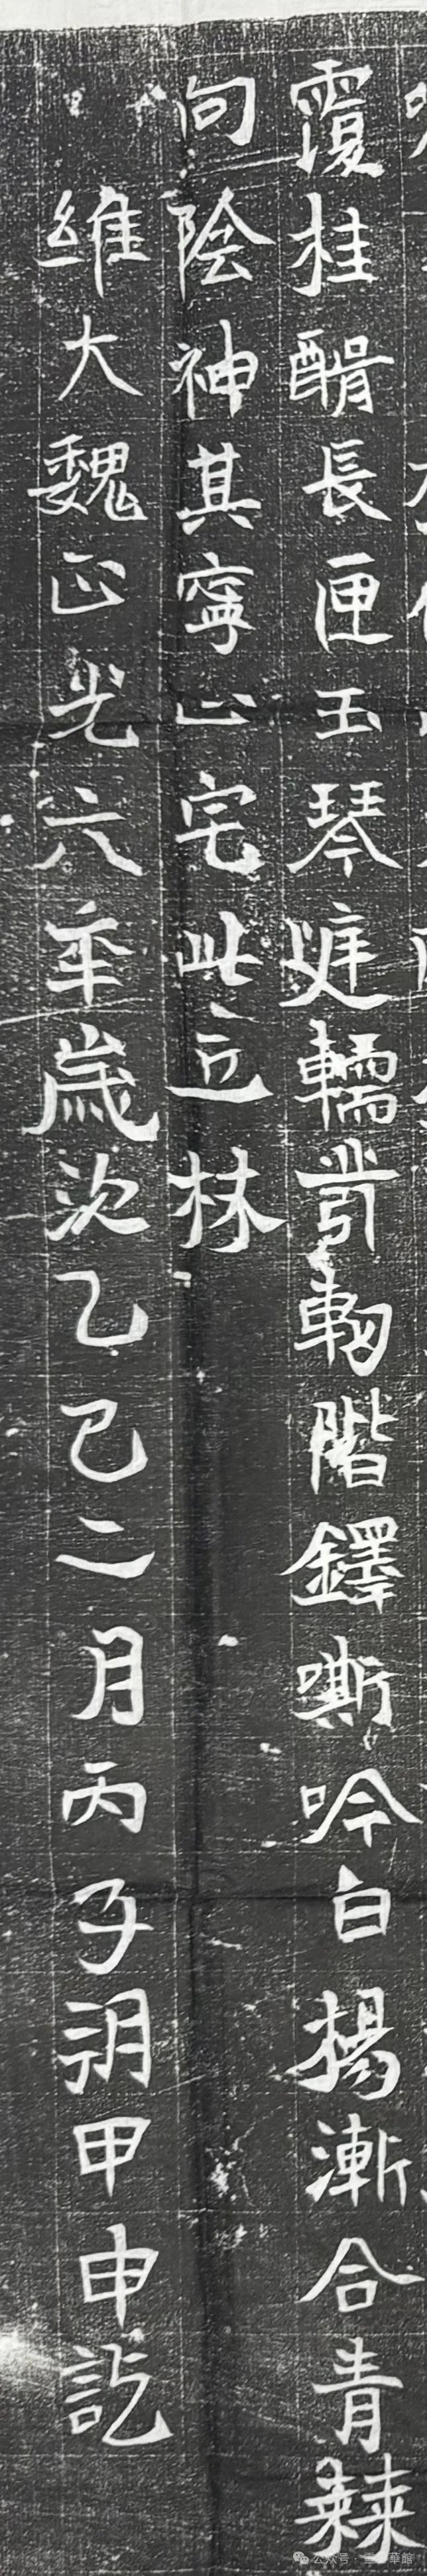 覆桂醑長匣玉琴庭轜芻軔階鐸嘶吟白揚漸合青棘
向陰神其寧止宅此丘林
維大魏正光六年歲次乙巳二月丙子朔甲申訖